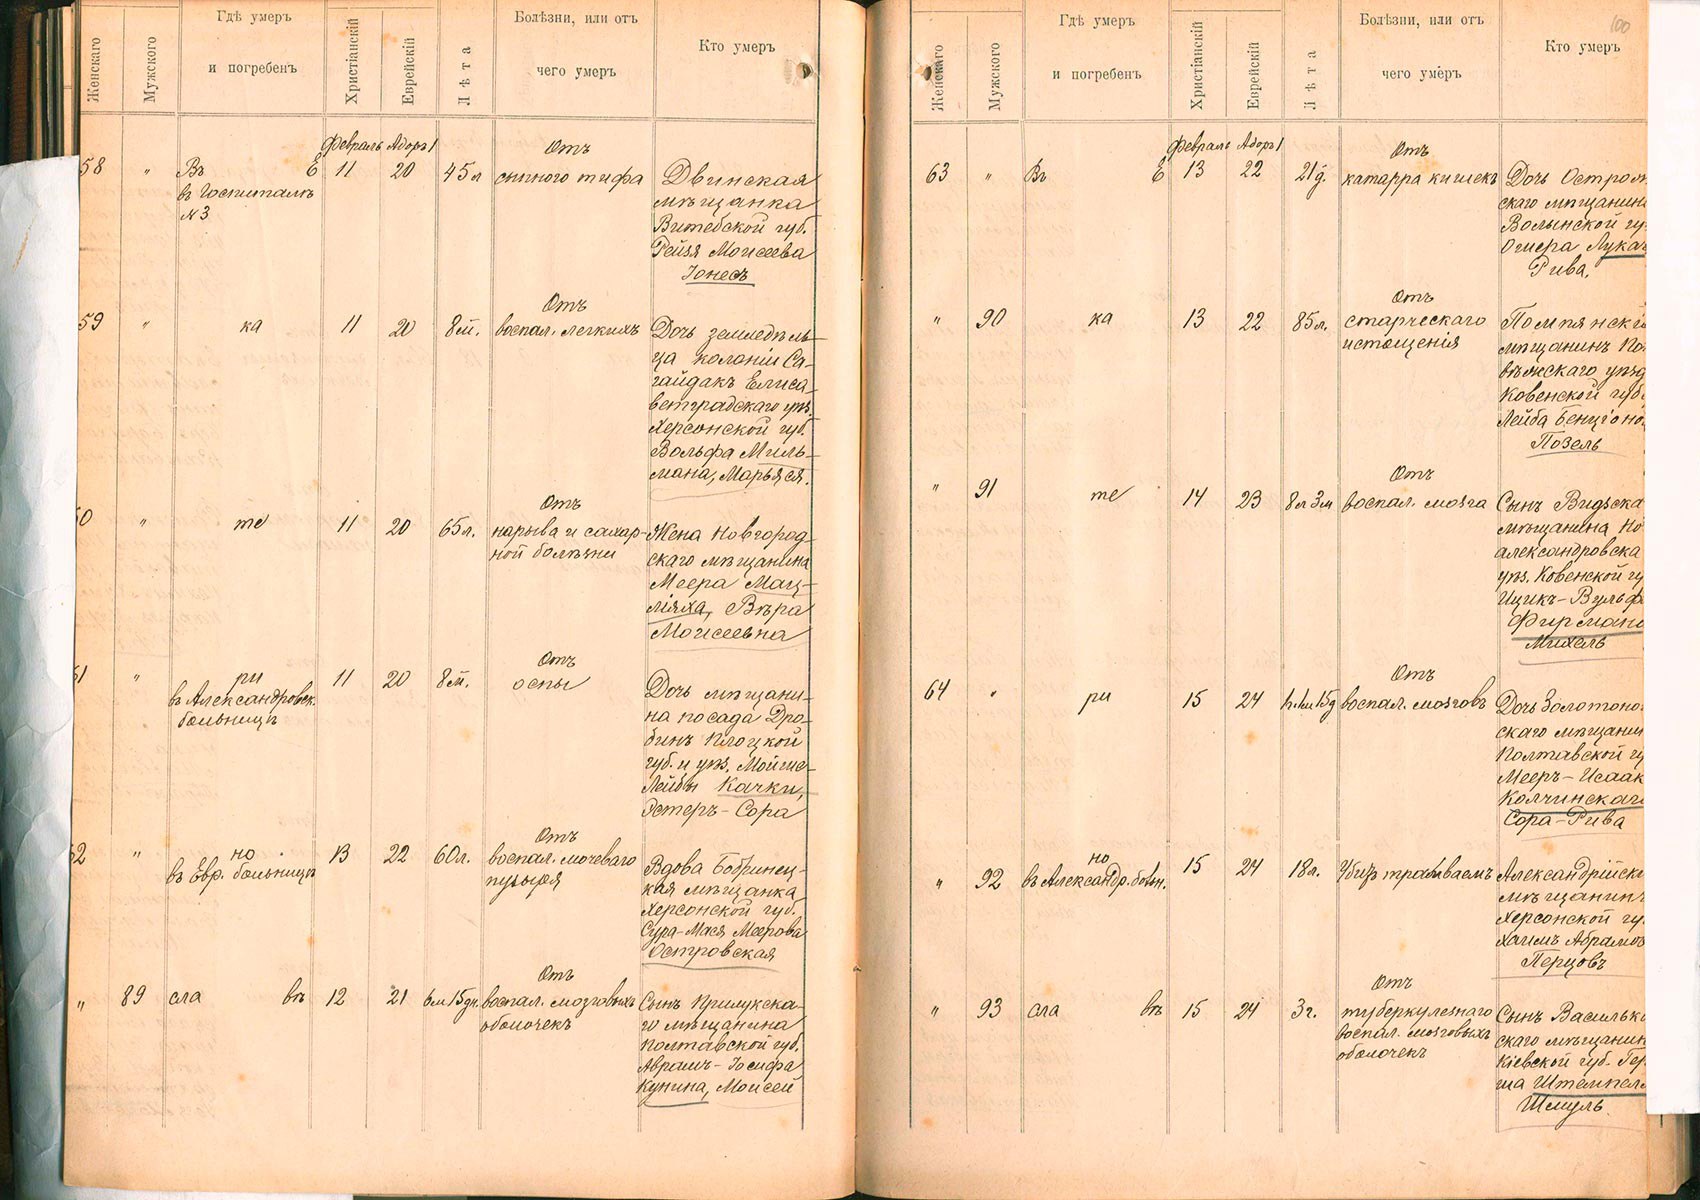 Женскаго
Мужского
Гдѣ умеръ
и погребенъ
Христіанскій
Еврейскій
Лѣта
Болѣзни, или отъ
чего умеръ
Кто умеръ
Февраль Адоръ 1
58 " Въ Е 11 20 45 л
в Госпиталѣ
№3
Отъ
сыпного тифа
Двинская
мѣщанка
Витебской губ.
Рейзя Моисеева
Іонесъ
59 " ка 11 20 8 м.
Отъ
воспал. легкихъ
Дочь земледѣль-
ца колоніи Са-
гайдакъ Елиса-
ветградскаго уѣз.
Херсонской губ.
Вольфа Миль-
мана, Марьяся.
60 " те 11 20 65 л.
Отъ
нарыва и сахар-
ной болѣзни
Жена Новгород-
скаго мѣщанина
Меера Мац-
Вѣра
Моисеевна
61 " ри 11 20 8 м.
въ Александровск.
больницѣ
Отъ
оспы
Дочь мѣщани-
на посада Дро-
бинъ Плоцкой
губ. и уѣз. Мойше-
Лейбы Качки,
Эстеръ-Сора
62 " но 13 22 60 л.
въ Евр. больницѣ
Отъ
воспал. мочеваго
пузыря
Вдова Бобринец-
кая мѣщанка
Херсонской губ.
Сура-Мася Меерова
Островская
" 89 сла вѣ 12 21 6 м 15 дн.
Отъ
воспал. мозговыхъ
оболочекъ
Сынъ Прилукска-
го мѣщанина
Полтавской губ.
Аврамъ-Іосифа
Кунина, Моисей
100
Женскаго
Мужского
Гдѣ умеръ
и погребенъ
Христіанскій
Еврейскій
Лѣта
Болѣзни, или отъ
чего умеръ
Кто умеръ
Февраль Адоръ 1
63 " Въ Е 13 22 21 д.
Отъ
катарра кишекъ
Дочь Острож
скаго мѣщанин
Волынской гу
Ошера Лука
Рива.
" 90 ка 13 22 85 л.
Отъ
старческаго
истощенія
Помпянскі
мѣщанинъ По
вѣжскаго уѣзд
Ковенской губ.
Лейба Бенціоно
Позель
" 91 те 14 23 8 л 3 м
Отъ
воспал. мозга
Сынъ Видзска
мѣщанина Но
александровска
уѣз. Ковенской гу
Ицикъ-Вульф
Фирмана
Михель
64 " ри 15 24
Отъ
воспал. мозговъ
Дочь Золотоно
скаго мѣщани
Полтавской гу
Мееръ-Исаак
Колчинскаг
Сора-Рива
" 92 но 15 24 18 л.
въ Александр. больн.
Убитъ трамваемъ
Александрійск
мѣщанинъ
Херсонской гу
Хаимъ Абрамов
Перцовъ
" 93 сла вѣ 15 24 3 г.
Отъ
туберкулезнаго
воспал. мозговыхъ
оболочекъ
Сынъ Василько
скаго мѣщанин
Кіевской губ. Гер
ша Штемпел
Шмуль